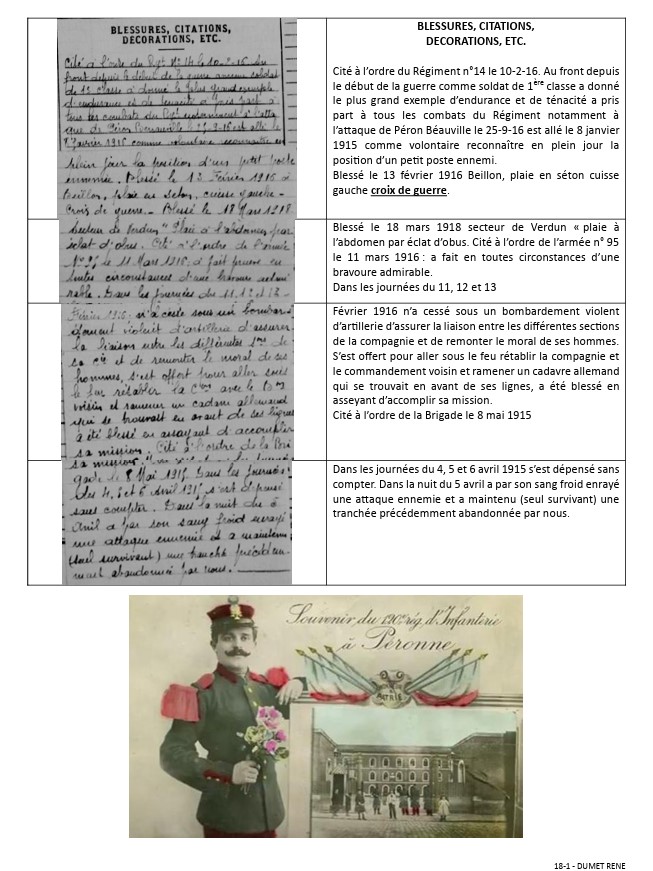 BLESSURES, CITATIONS,
DECORATIONS, ETC.
Cité à l'ordre du Rgt N° 14 le 10-2-16. Au
front depuis le début de la guerre comme soldat
de 1e classe a donné le plus grand exemple
d'endurance et de tenacité a pris part à
tous les combats du Rgt notamment à l'atta
que de Péron le 25-9-16 est allé le
8 Janvier 1915 comme volontaire reconnaître en
plein jour la position d'un petit poste
ennemie. Blessé le 13 Février 1916 à
Beillon, plaie en seton, cuisse gauche -
Croix de guerre. - Blessé le 18 Mars 1918.
BLESSURES, CITATIONS,
DECORATIONS, ETC.
Cité à l'ordre du Régiment n°14 le 10-2-16. Au front depuis
le début de la guerre comme soldat de 1ère classe a donné
le plus grand exemple d'endurance et de ténacité a pris
part à tous les combats du Régiment notamment à
l'attaque de Péron Béauville le 25-9-16 est allé le 8 janvier
1915 comme volontaire reconnaître en plein jour la
position d'un petit poste ennemi.
Blessé le 13 février 1916 Beillon, plaie en séton cuisse
gauche croix de guerre.
secteur de Verdun "Plaie à l'abdomen par
éclat d'obus. Cité à l'ordre de l'armée
N° 95 le 11 Mars 1916, a fait preuve en
toutes circonstances d'une bravoure admi
rable. Dans les journées du 11.12 et 13 -
Blessé le 18 mars 1918 secteur de Verdun « plaie à
l'abdomen par éclat d'obus. Cité à l'ordre de l'armée n° 95
le 11 mars 1916 : a fait en toutes circonstances d'une
bravoure admirable.
Dans les journées du 11, 12 et 13
Février 1916. n'a cessé sous un bombar
dement violent d'artillerie d'assurer
la liaison entre les différentes son de
sa cie et de remonter le moral de ses
hommes, s'est offert pour aller sous
le feu rétablir la avec le
voisin et ramener un cadavre allemand
qui se trouvait en avant de ses lignes
a été blessé en assayant d'accomplir
sa mission. Cité à l'ordre de la Bri
Février 1916 n'a cessé sous un bombardement violent
d'artillerie d'assurer la liaison entre les différentes sections
de la compagnie et de remonter le moral de ses hommes.
S'est offert pour aller sous le feu rétablir la compagnie et
le commandement voisin et ramener un cadavre allemand
qui se trouvait en avant de ses lignes, a été blessé en
asseyant d'accomplir sa mission.
Cité à l'ordre de la Brigade le 8 mai 1915
sa mission.
gade le 8 Mai 1915. Dans les journées
des 4, 5 et 6 Avril 1915 s'est dépensé
sans compter. Dans la nuit du 5
Avril a par son sang froid enrayé
une attaque ennemie et a maintenu
(seul survivant) une tranchée précédem-
ment abandonnée par nous.
Dans les journées du 4, 5 et 6 avril 1915 s'est dépensé sans
compter. Dans la nuit du 5 avril a par son sang froid enrayé
une attaque ennemie et a maintenu (seul survivant) une
tranchée précédemment abandonnée par nous.
Souvenir du 120e rég. d'Infanterie
à Péronne
HONNEUR
& PATRIE
18-1 - DUMET RENE